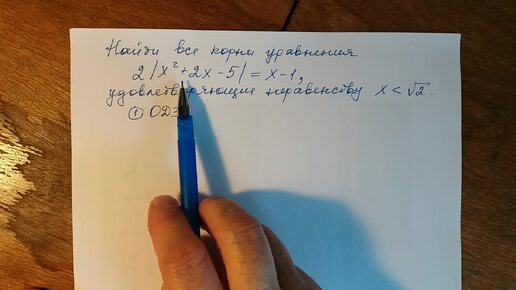 Найди все корни уравнения
2|x²+2x-5| = x-1,
удовлетворяющие неравенству x < √2.
① ОДЗ